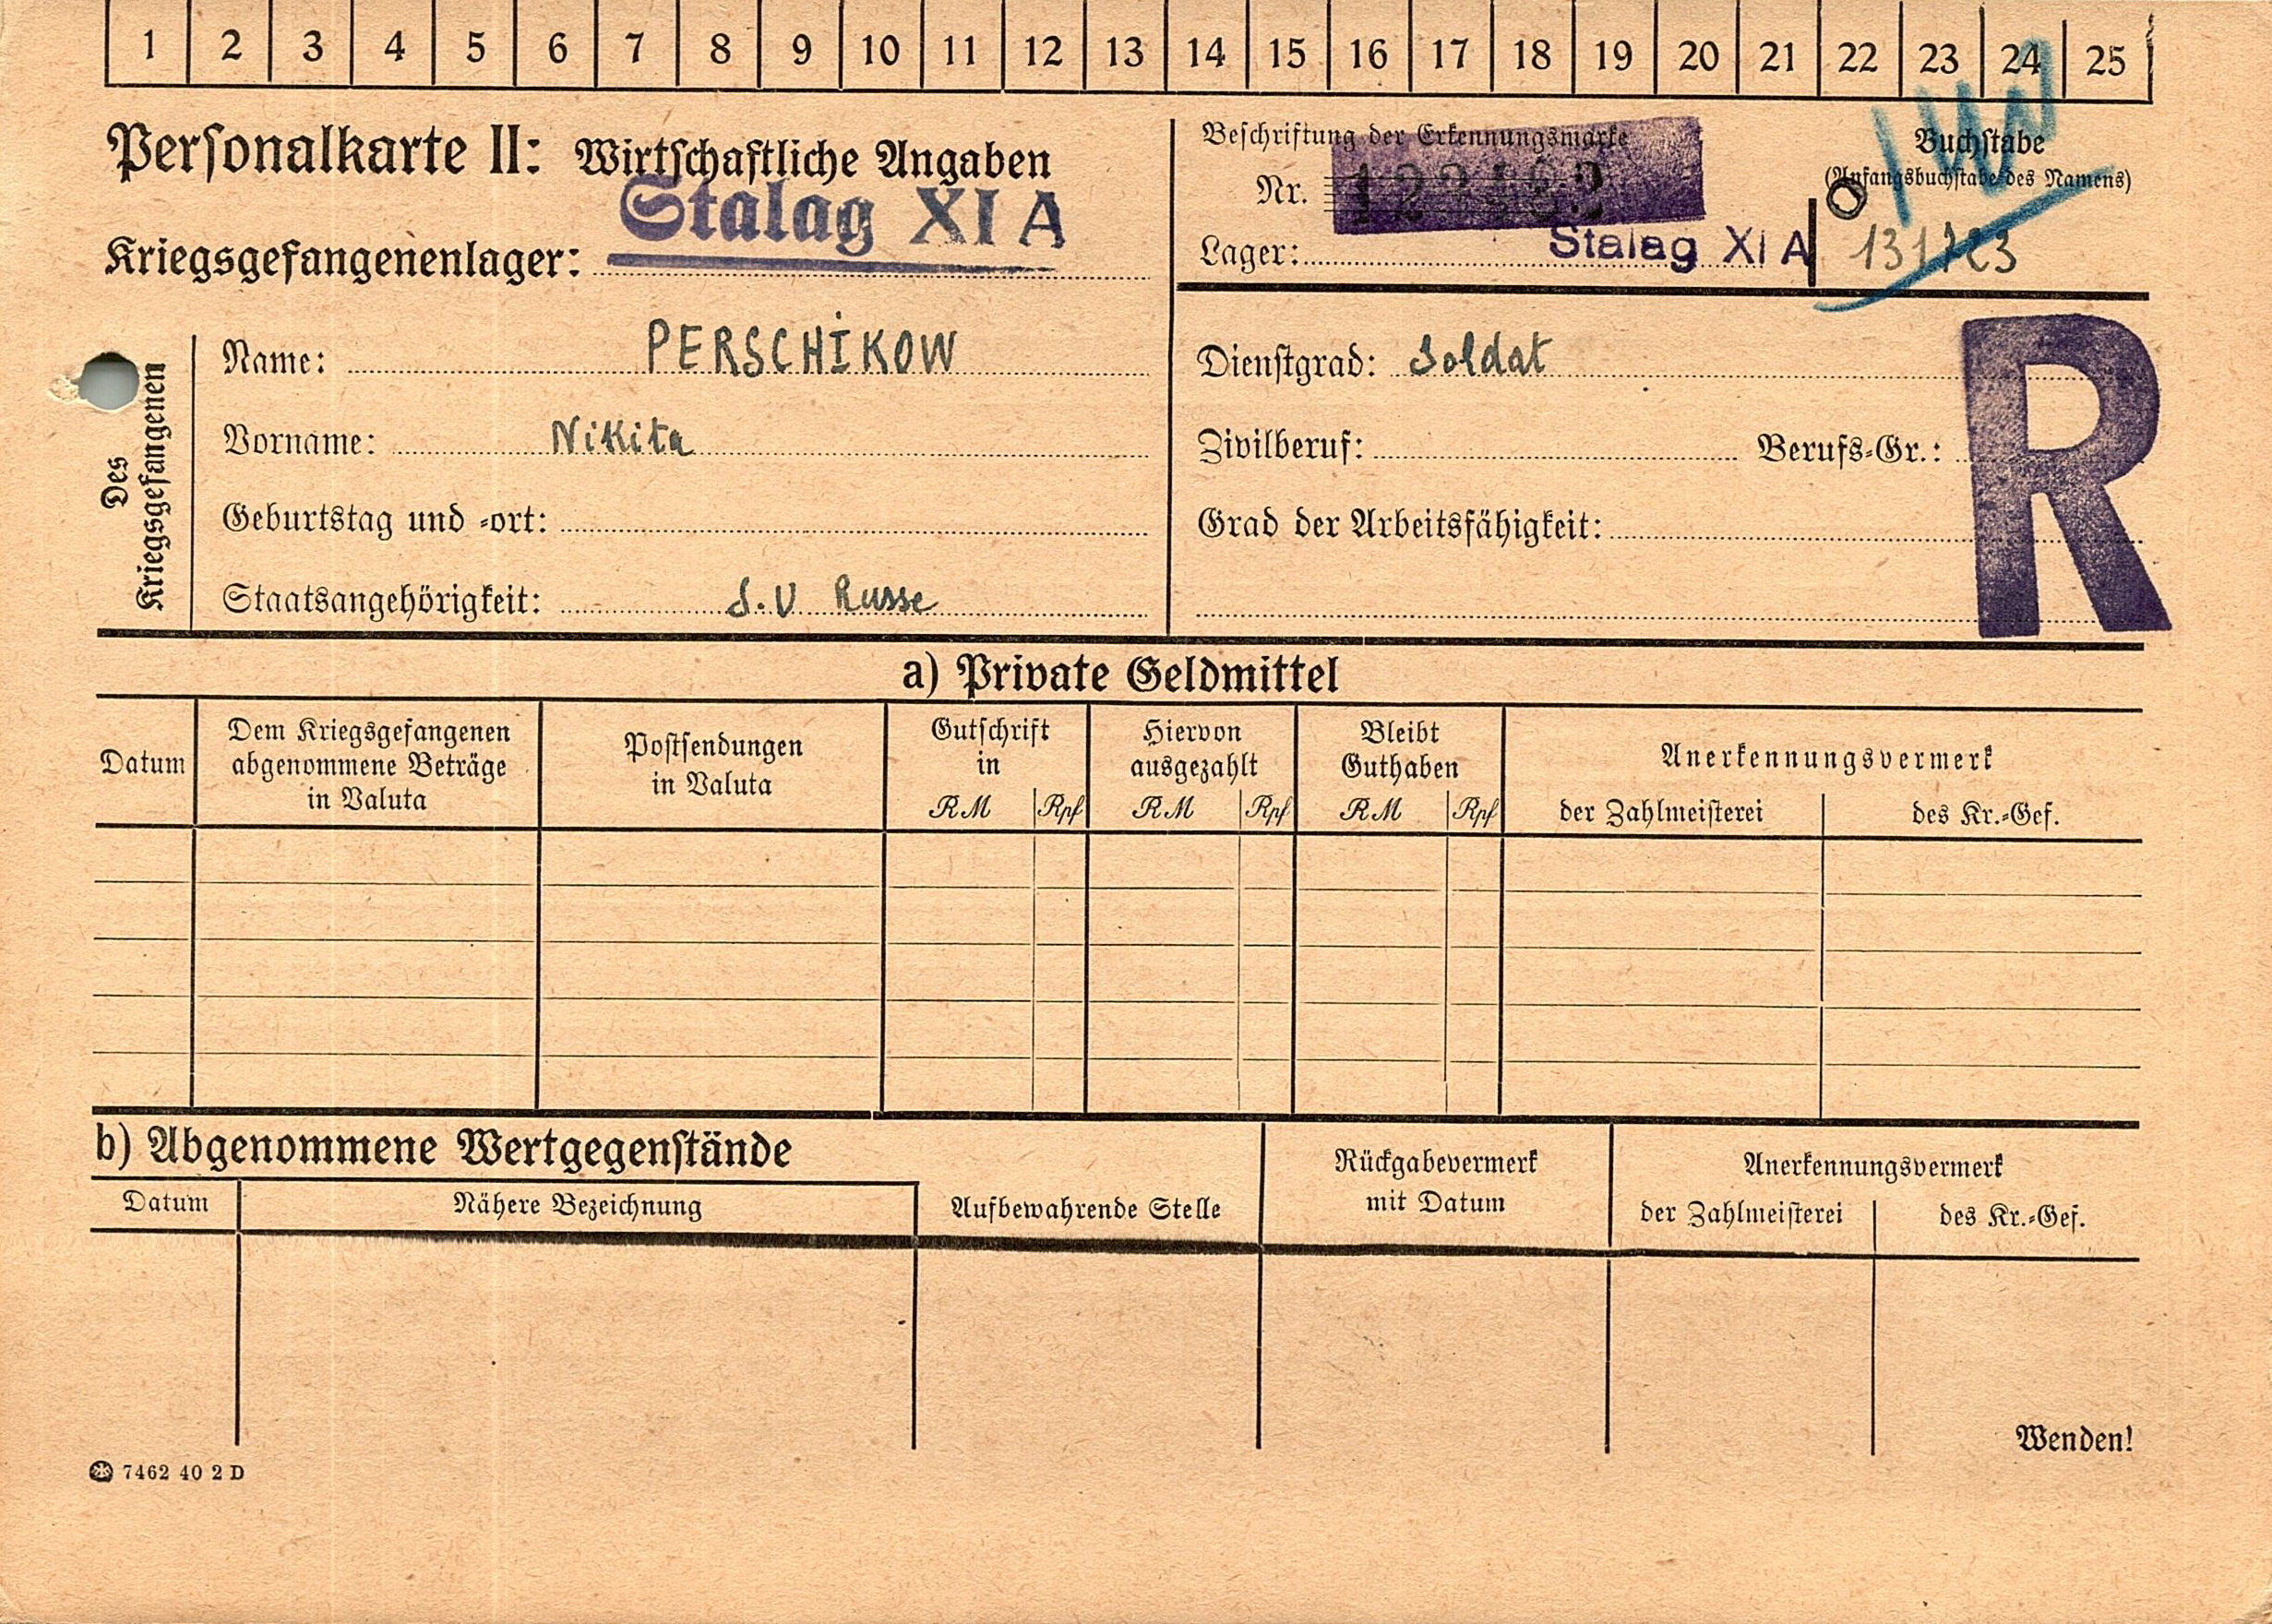 1 2 3 4 5 6 7 8 9 10 11 12 13 14 15 16 17 18 19 20 21 22 23 24 25
Personalkarte II: Wirtschaftliche Angaben
Stalag XI A
Kriegsgefangenenlager:
Beschriftung der Erkennungsmarke
Nr.
Lager: Stalag XI A
Buchstabe
(Anfangsbuchstabe des Namens)
Des
Kriegsgefangenen
Name: PERSCHIKOW
Vorname: Nikita
Geburtstag und -ort:
Staatsangehörigkeit: S.U Russe
Dienstgrad: Soldat
Zivilberuf: Berufs-Gr.:
Grad der Arbeitsfähigkeit:
R
a) Private Geldmittel
Datum
Dem Kriegsgefangenen
abgenommene Beträge
in Valuta
Postsendungen
in Valuta
Gutschrift
in
RM Rpf
Hiervon
ausgezahlt
RM Rpf
Bleibt
Guthaben
RM Rpf
Anerkennungsvermerk
der Zahlmeisterei des Kr.-Gef.
b) Abgenommene Wertgegenstände
Datum
Nähere Bezeichnung
Aufbewahrende Stelle
Rückgabevermerk
mit Datum
Anerkennungsvermerk
der Zahlmeisterei des Kr.-Gef.
Wenden!
7462 40 2 D